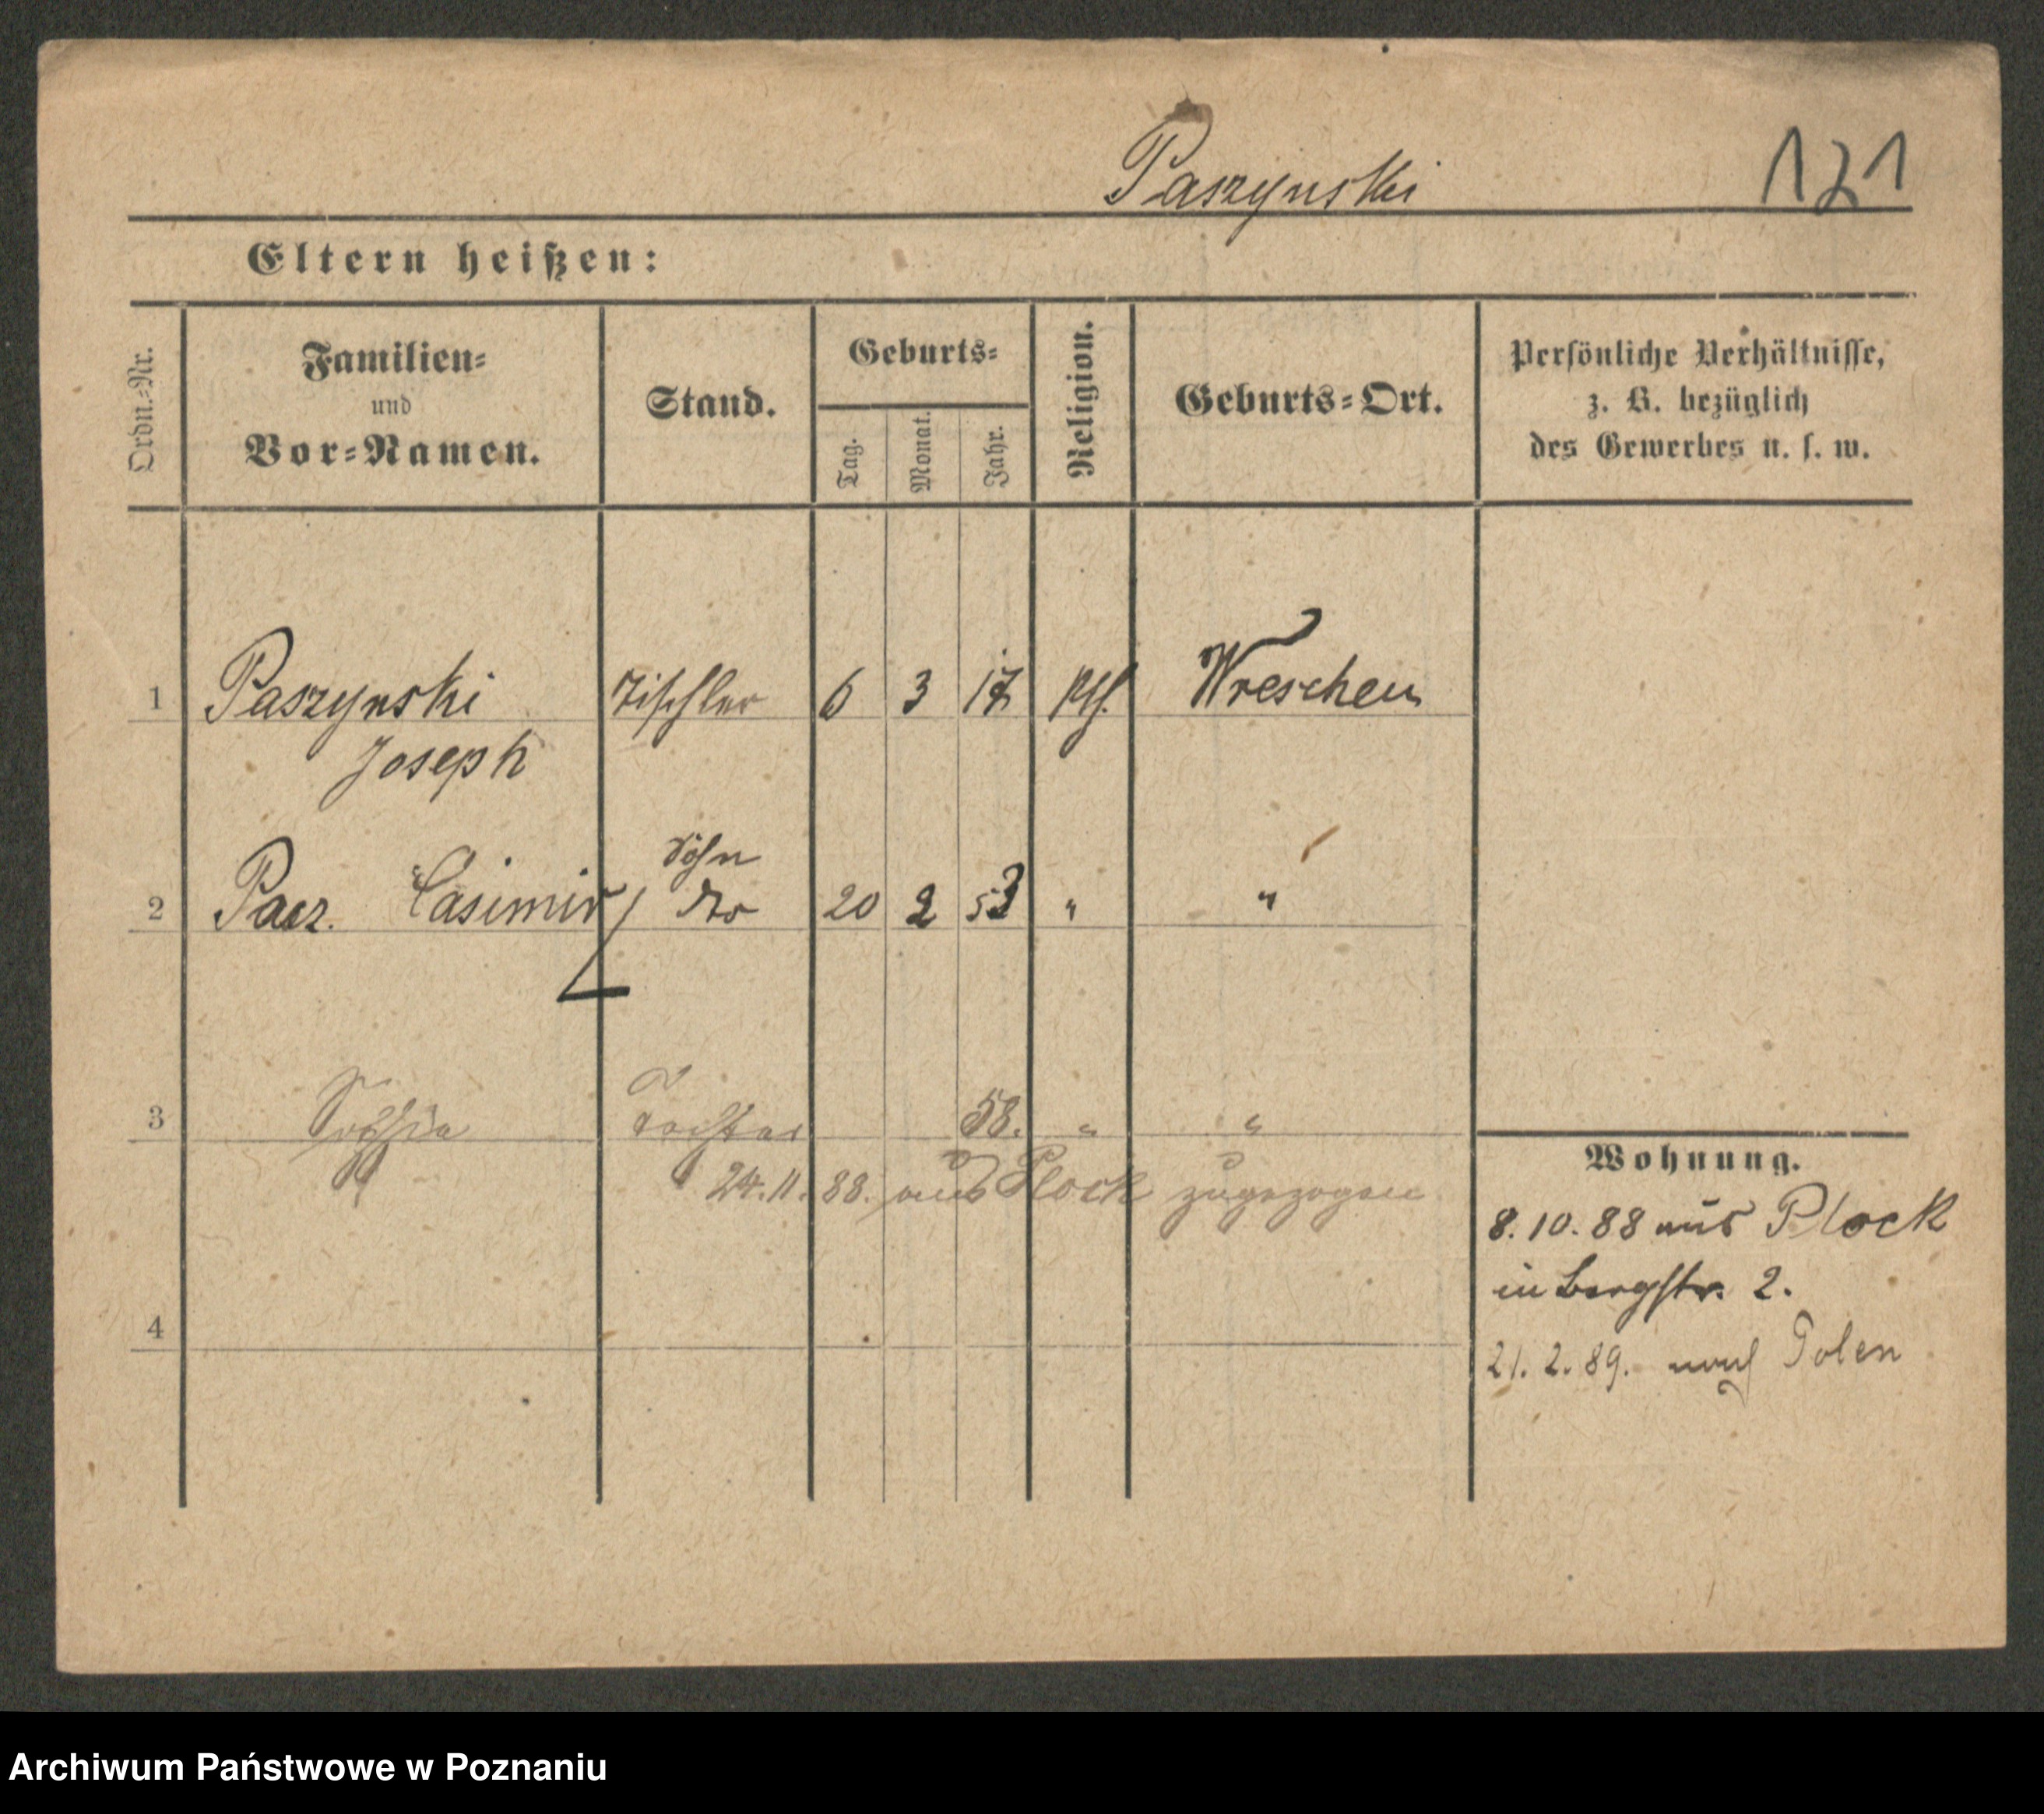 Paszynski 121
Eltern heißen:
Ordn.-Nr.
Familien-
und
Vor-Namen.
Stand.
Geburts-
Tag.
Monat.
Jahr.
Religion.
Geburts-Ort.
Persönliche Verhältnisse,
z. B. bezüglich
des Gewerbes u. s. w.
1 Paszynski Tischler 6 3 17 kth. Wreschen
Joseph
Sohn
2 Pasz. Casimir 20 2 53 " "
3 Sophia Tochter 58. " "
24.11.88. aus Plock zugezogen
4
Wohnung.
8.10.88 aus Plock
in Bergstr. 2.
21.2.89. nach Polen
Archiwum Państwowe w Poznaniu